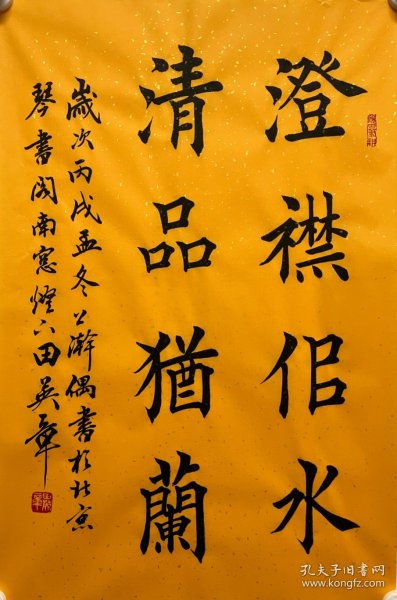 澄襟佀水
清品猶蘭
歲次丙戌孟冬之瀚偶書於北京
琴書閣南窓燈下田英章
孔夫子旧书网
www.kongfz.com